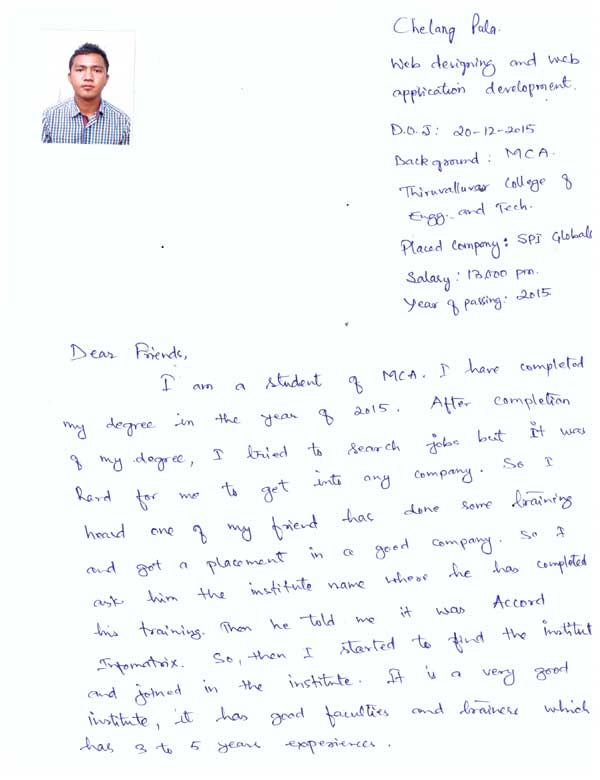 Chelang Pala.
Web designing and web
application development.
D.O.J: 20-12-2015
Background: MCA.
Thiruvalluvar College of
Engg. and Tech.
Placed Company: SPI Globals
Salary: 13,000 pm.
Year of passing: 2015
Dear Friends,
I am a student of MCA. I have completed
my degree in the year of 2015. After completion
of my degree, I tried to search jobs but It was
hard for me to get into any company. So I
heard one of my friend has done some training
and got a placement in a good company. So I
ask him the institute name where he has completed
his training. Then he told me it was Accord
Infomatrix. So, then I started to find the institut
and joined in the institute. It is a very good
institute, it has good faculties and trainers which
has 3 to 5 years experiences.